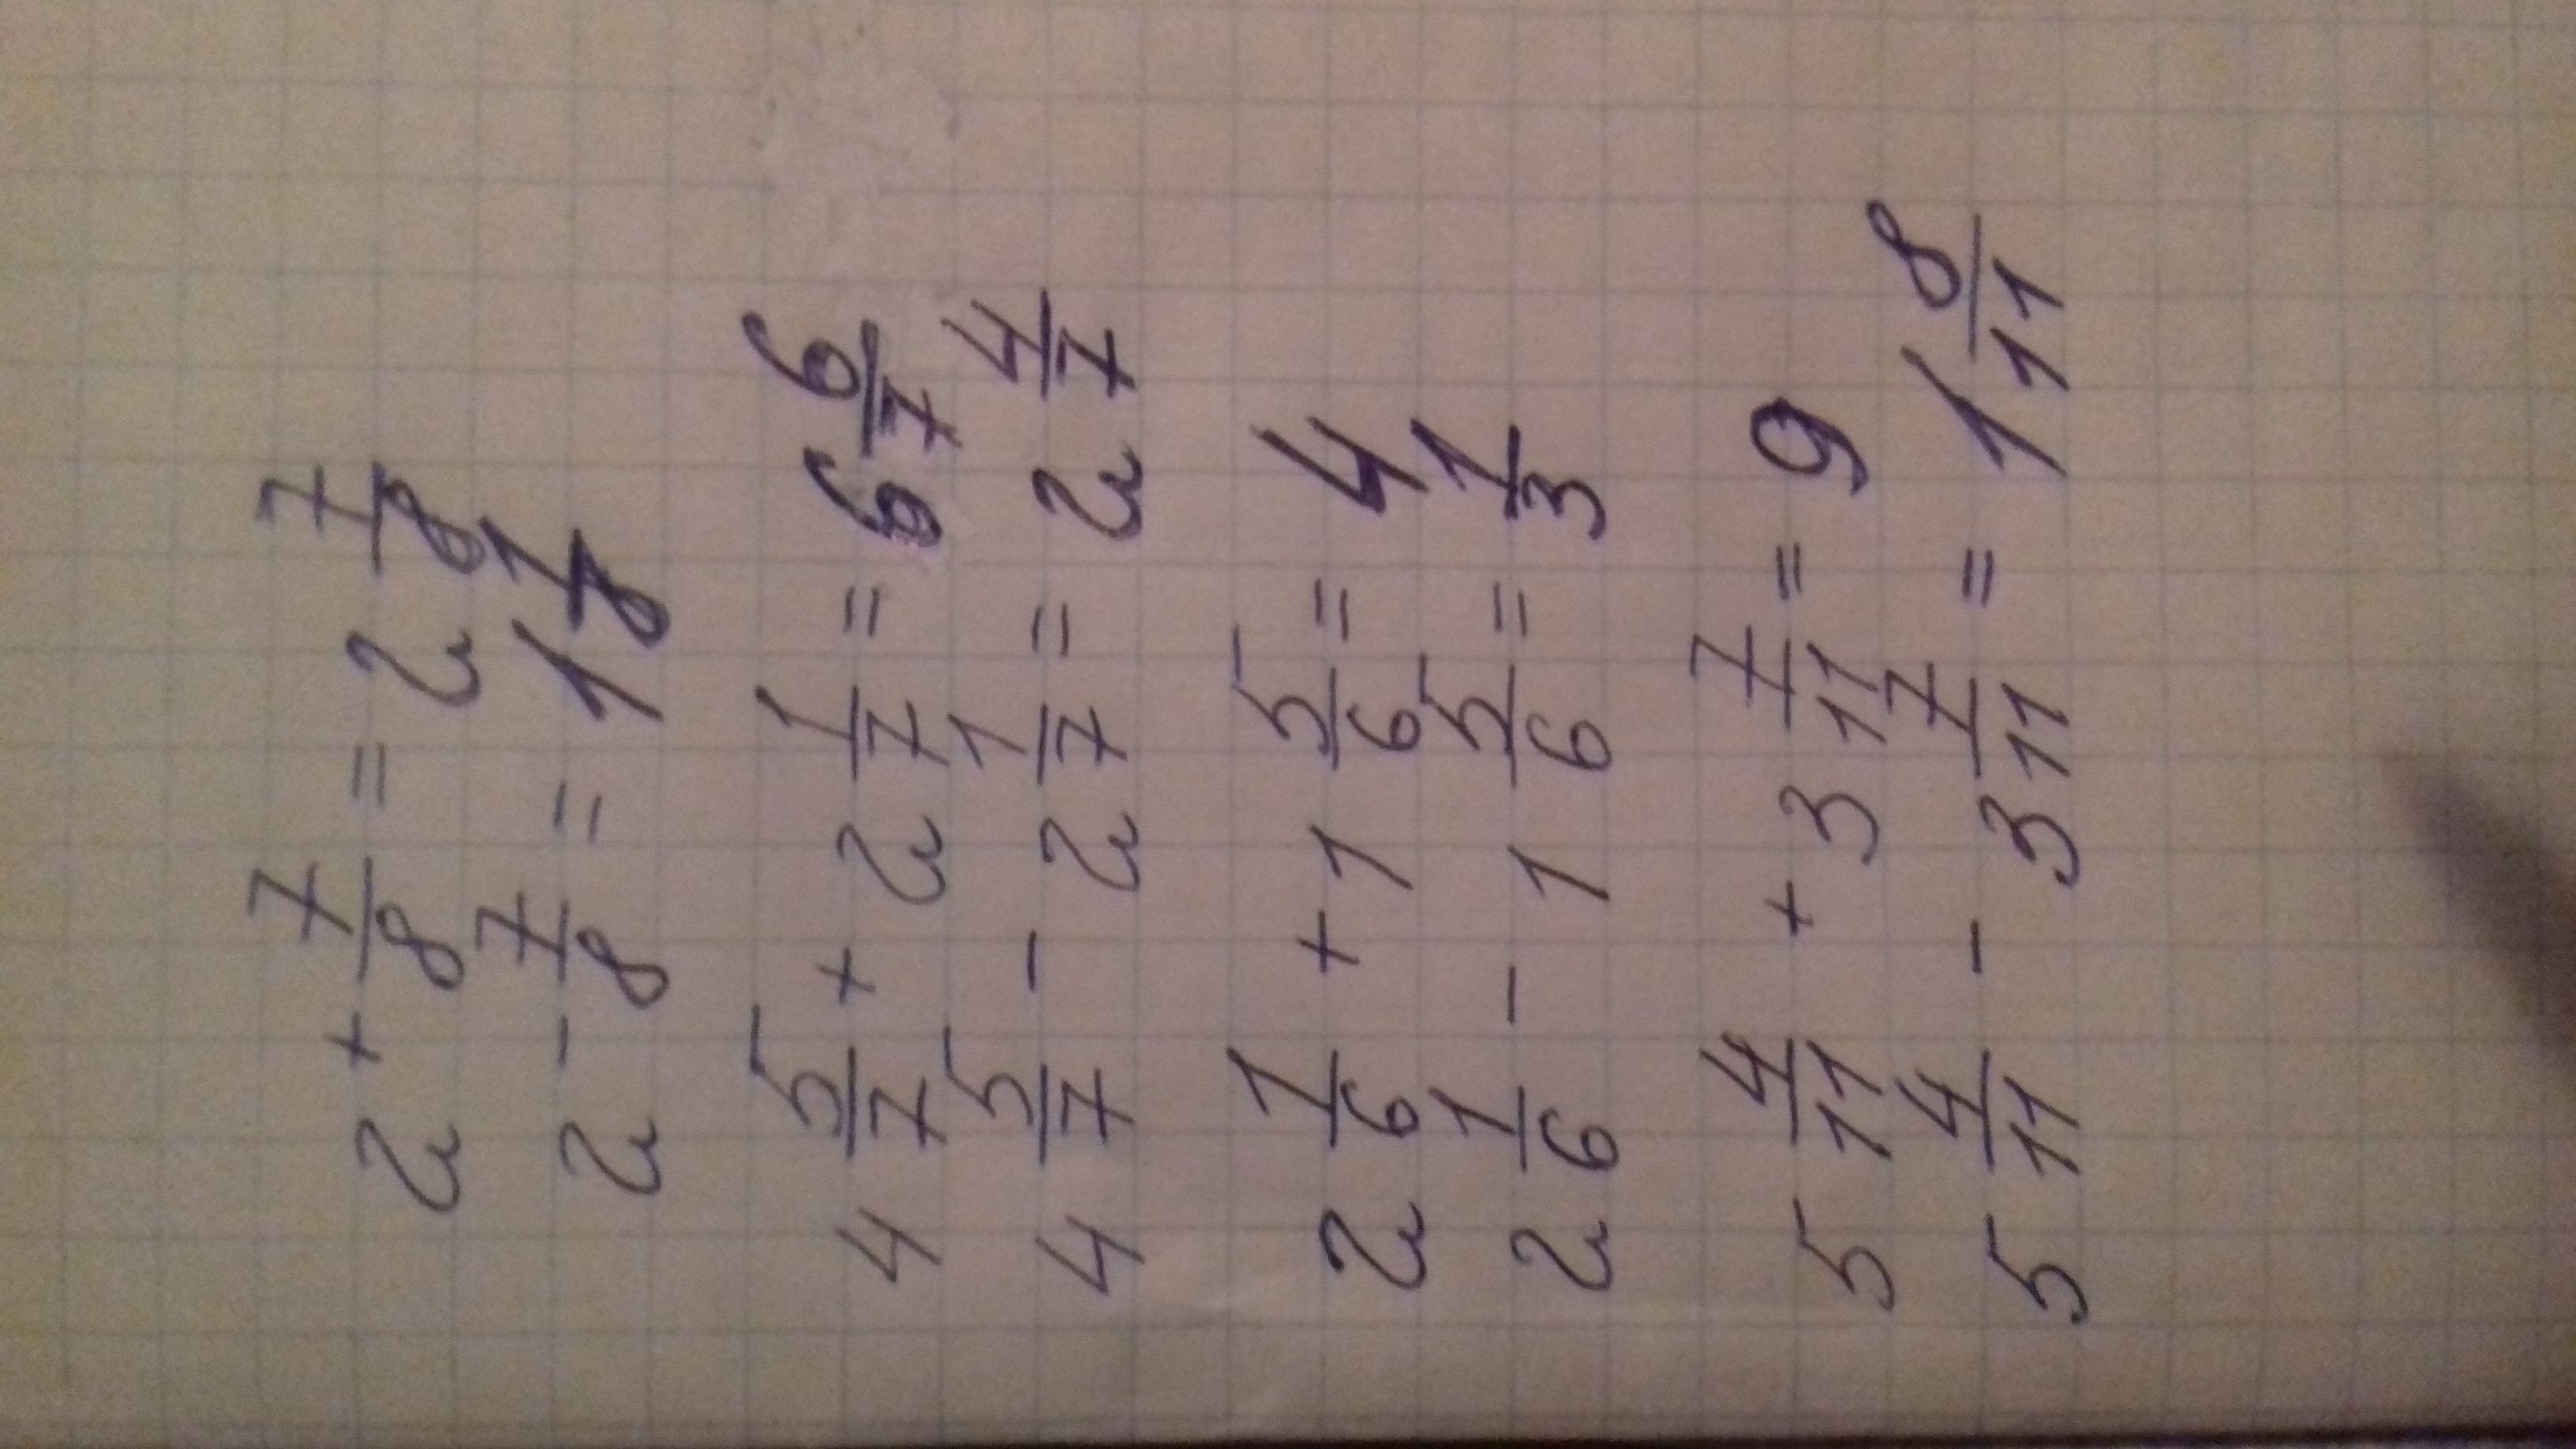 2 + 7/8 = 2 7/8
2 - 7/8 = 1 1/8
4 5/7 + 2 1/7 = 6 6/7
4 5/7 - 2 1/7 = 2 4/7
2 1/6 + 1 5/6 = 4
2 1/6 - 1 5/6 = 1/3
5 4/11 + 3 7/11 = 9
5 4/11 - 3 7/11 = 1 8/11